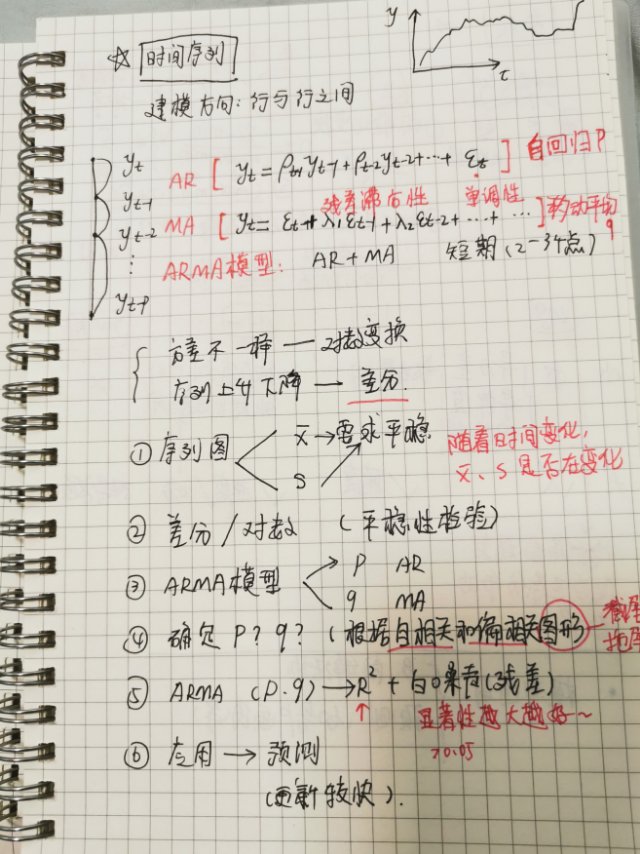 y
t
☆ 时间序列
建模方向: 行与行之间
yt
yt-1
yt-2
⋮
yt-p
AR [ yt = ρt-1yt-1 + ρt-2yt-2 + ⋯ + εt ] 自回归P
残差滞后性 单调性
MA [ yt = εt + λ1εt-1 + λ2εt-2 + ⋯ + ⋯ ] 移动平均q
ARMA模型: AR + MA 短期(2-3个点)
方差不一样 — 对数变换
序列上升下降 → 差分.
① 序列图 x̄ → 要求平稳
S
随着时间变化,
x̄、S 是否在变化
② 差分 / 对数 (平稳性检验)
③ ARMA模型 P AR
q MA
④ 确定 P? q? (根据自相关和偏相关图形) — 截尾
拖尾
⑤ ARMA (P.q) → R² + 白噪声(残差)
↑ 显著性越大越好~
>0.05
⑥ 应用 → 预测
(更新较快).